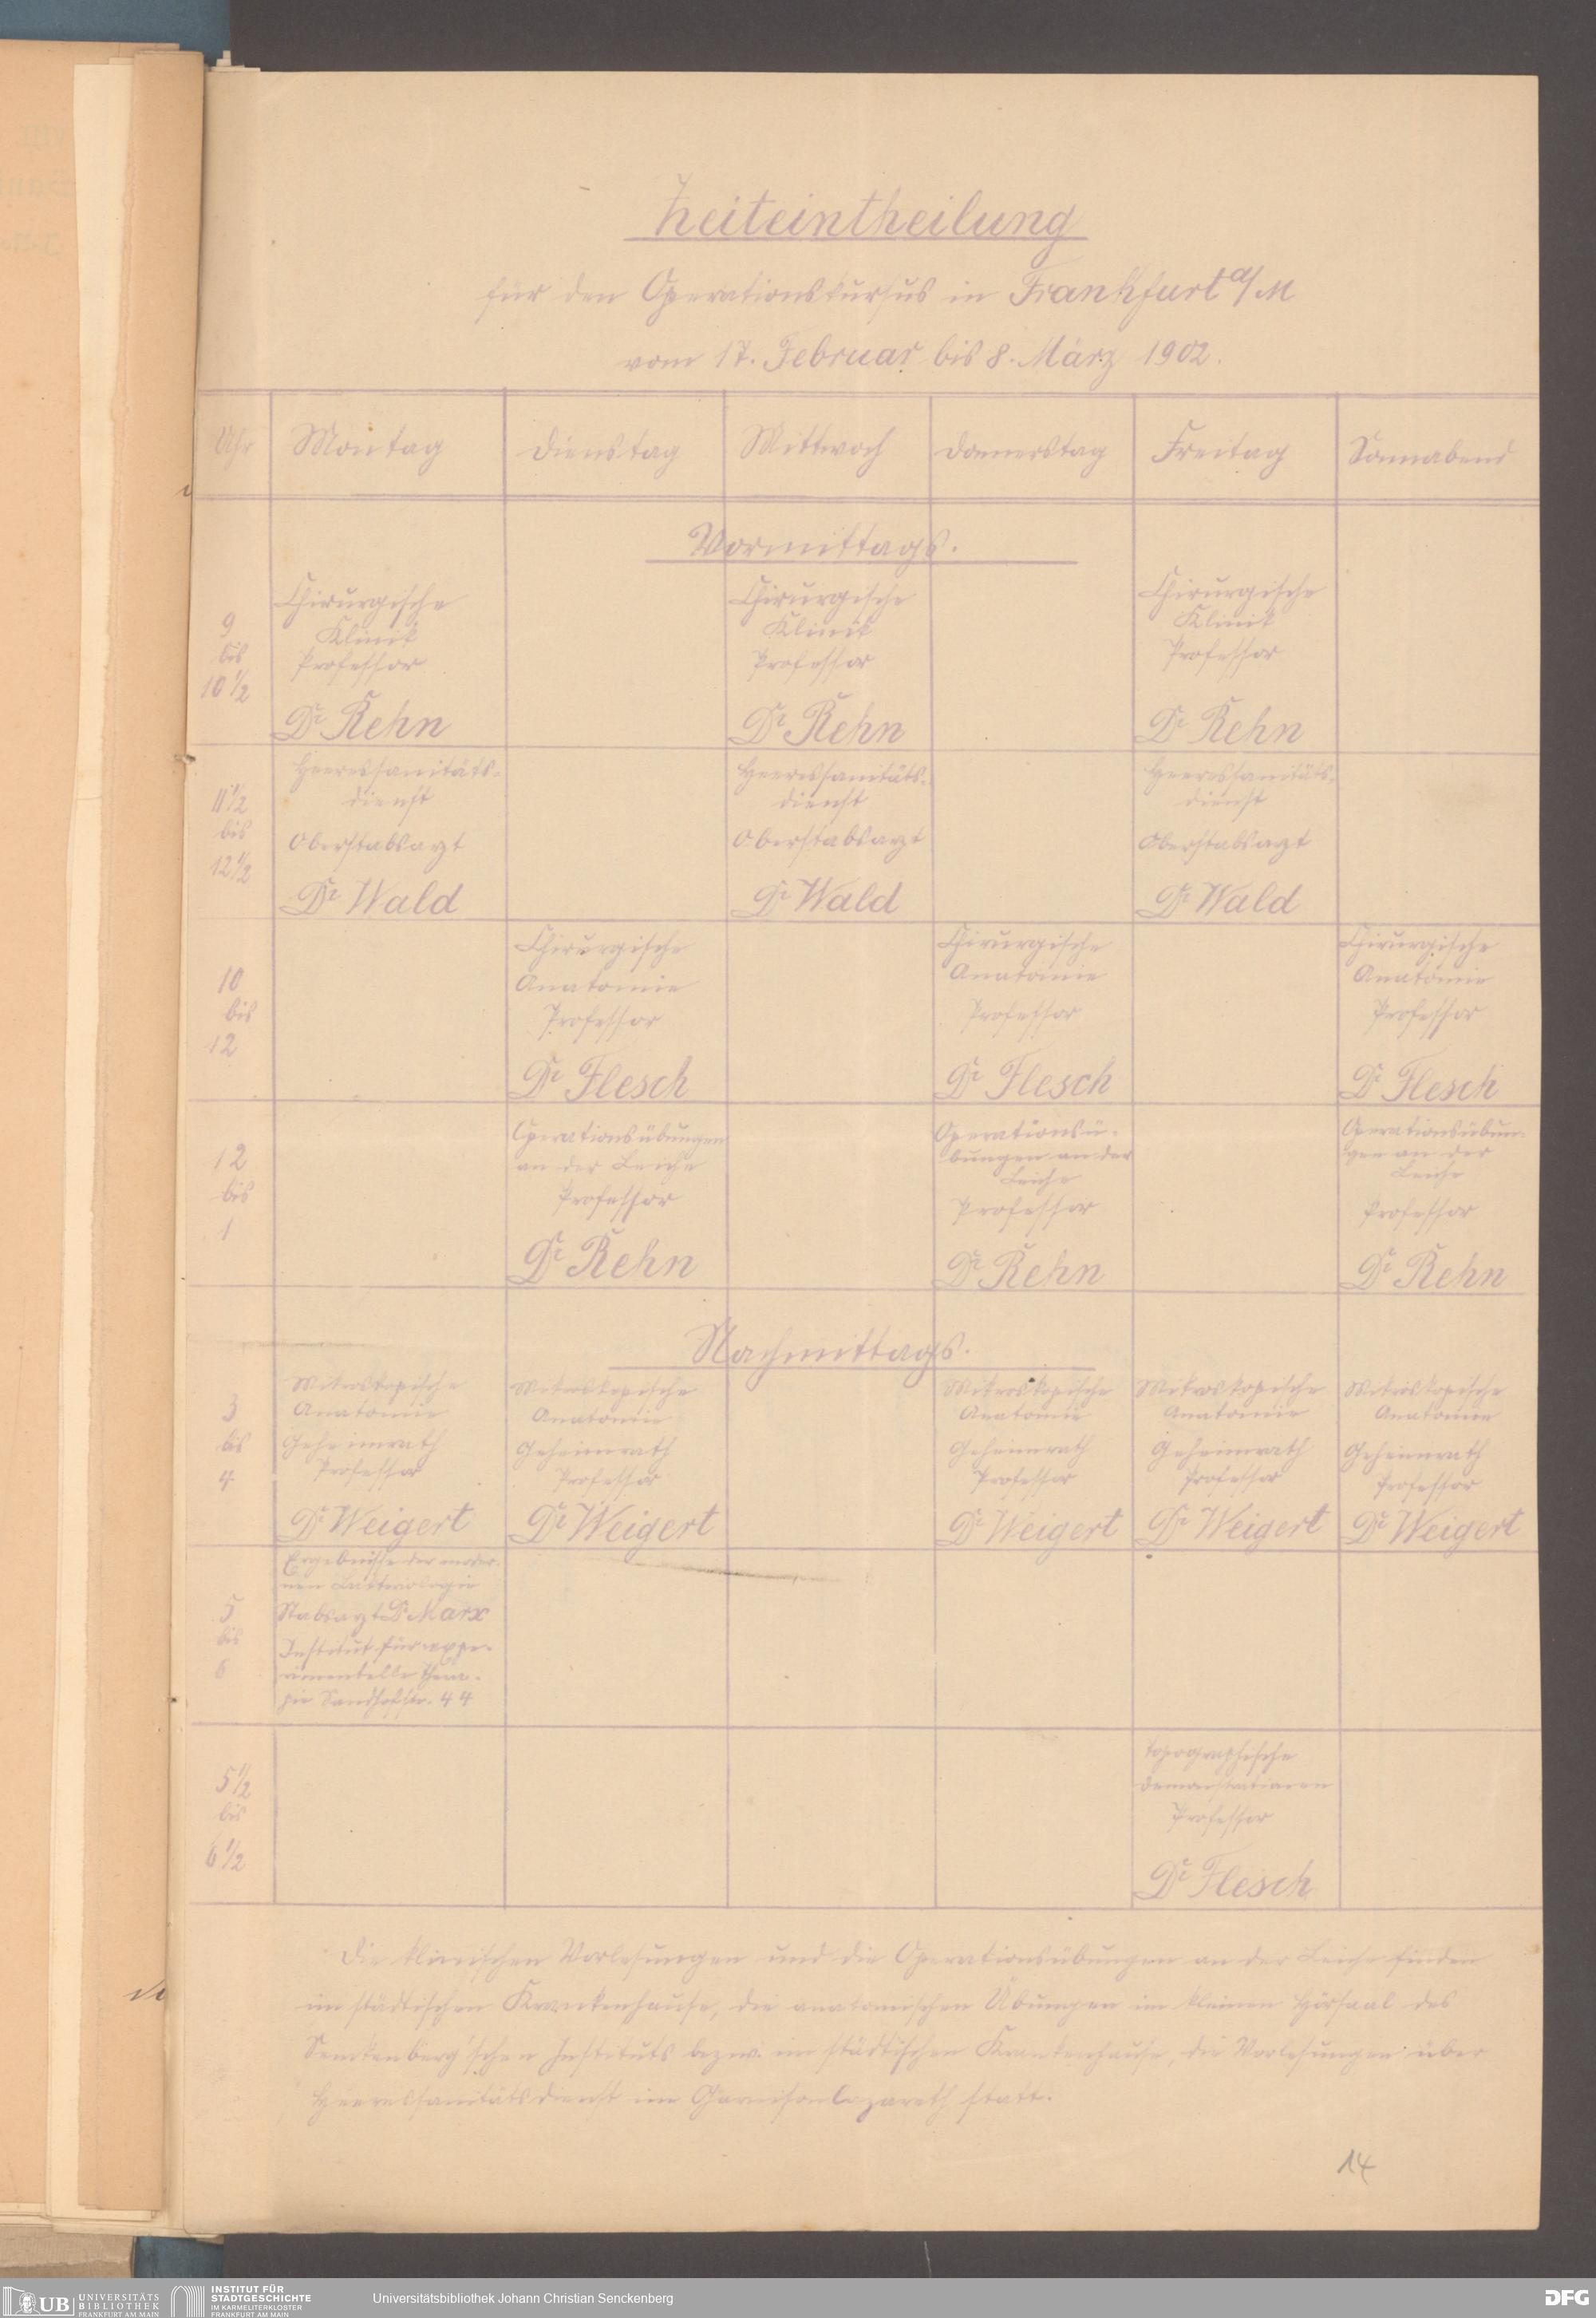 Zeiteintheilung
für den Operationskursus in Frankfurt a/M
vom 17. Februar bis 8. März 1902.
Uhr Montag Dienstag Mittwoch Donnerstag Freitag Sonnabend
Vormittags.
9 bis 10 1/2
Chirurgische
Klinik
Professor
Dr Rehn
Chirurgische
Klinik
Professor
Dr Rehn
Chirurgische
Klinik
Professor
Dr Rehn
11 1/2 bis 12 1/2
Heeressanitäts-
dienst
Oberstabsarzt
Dr Wald
Heeressanitäts-
dienst
Oberstabsarzt
Dr Wald
Heeressanitäts-
dienst
Oberstabsarzt
Dr Wald
10 bis 12
Chirurgische
Anatomie
Professor
Dr Flesch
Chirurgische
Anatomie
Professor
Dr Flesch
Chirurgische
Anatomie
Professor
Dr Flesch
12 bis 1
Operationsübungen
an der Leiche
Professor
Dr Rehn
Operationsü-
bungen an der
Leiche
Professor
Dr Rehn
Operationsübun-
gen an der
Leiche
Professor
Dr Rehn
Nachmittags.
3 bis 4
Mikroskopische
Anatomie
Geheimrath
Professor
Dr Weigert
Mikroskopische
Anatomie
Geheimrath
Professor
Dr Weigert
Mikroskopische
Anatomie
Geheimrath
Professor
Dr Weigert
Mikroskopische
Anatomie
Geheimrath
Professor
Dr Weigert
Mikroskopische
Anatomie
Geheimrath
Professor
Dr Weigert
5 bis 6
Ergebnisse der moder-
nen Bakteriologie
Stabsarzt Dr Marx
Institut für expe-
rimentelle Thera-
pie Sandhofstr. 44
5 1/2 bis 6 1/2
topographische
Demonstrationen
Professor
Dr Flesch
Die klinischen Vorlesungen und die Operationsübungen an der Leiche finden
im städtischen Krankenhause, die anatomischen Übungen im kleinen Hörsaal des
Senckenberg'schen Instituts bezw. im städtischen Krankenhause, die Vorlesungen über
Heeressanitätsdienst im Garnisonlazareth statt.
14
UB UNIVERSITÄTS
BIBLIOTHEK
FRANKFURT AM MAIN
INSTITUT FÜR
STADTGESCHICHTE
IM KARMELITERKLOSTER
FRANKFURT AM MAIN
Universitätsbibliothek Johann Christian Senckenberg
DFG